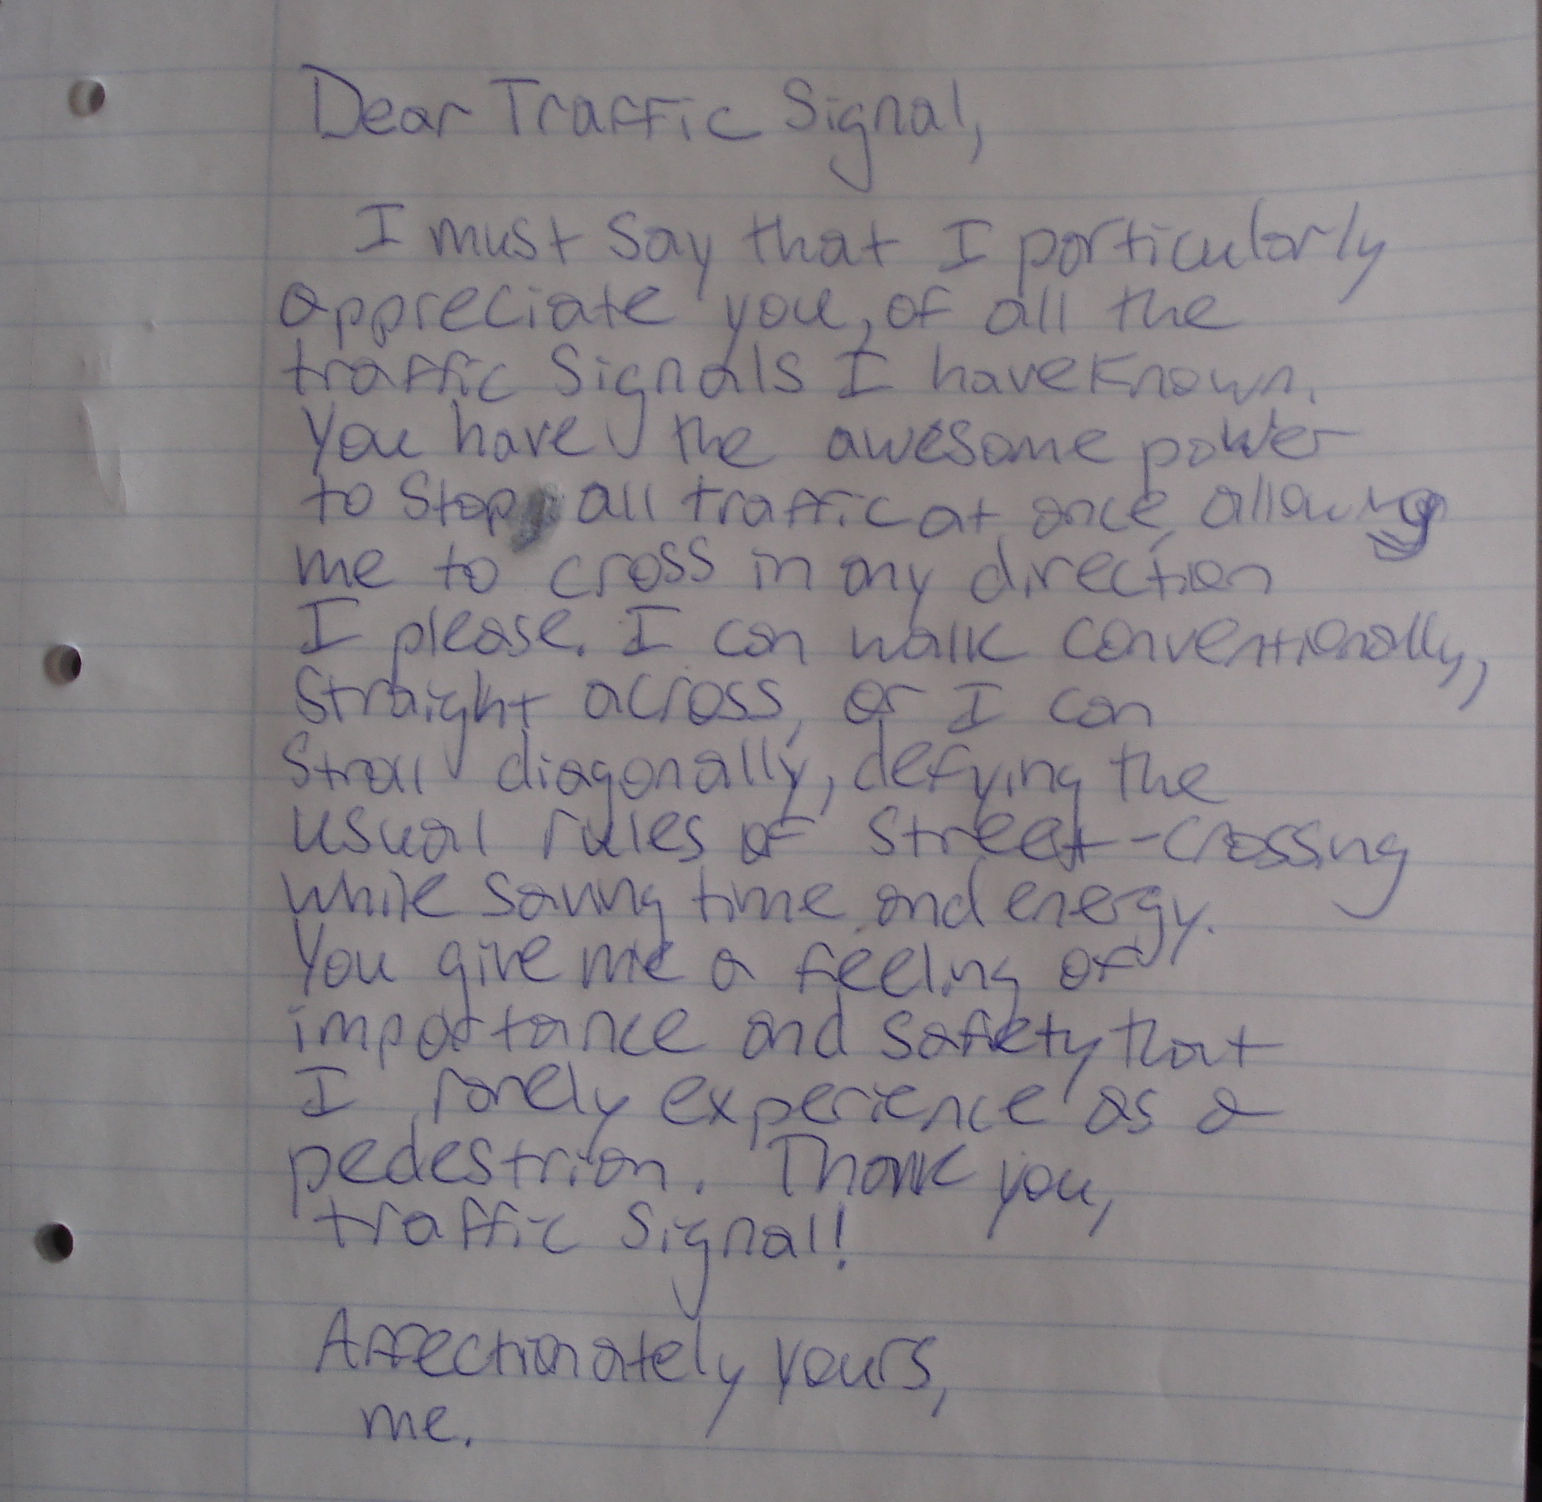 Dear Traffic Signal,
I must say that I particularly
appreciate you, of all the
traffic signals I have known.
You have the awesome power
to stop all traffic at once, allowing
me to cross in any direction
I please. I can walk conventionally,
straight across, or I can
stroll diagonally, defying the
usual rules of street-crossing
while saving time and energy.
You give me a feeling of
importance and safety that
I rarely experience as a
pedestrian. Thank you,
traffic signal!
Affectionately yours,
me.